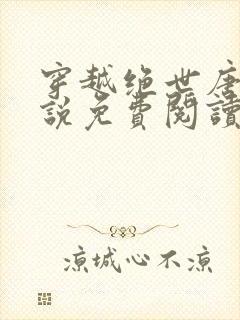 穿越绝世唐
说免費閱讀
凉城心不凉